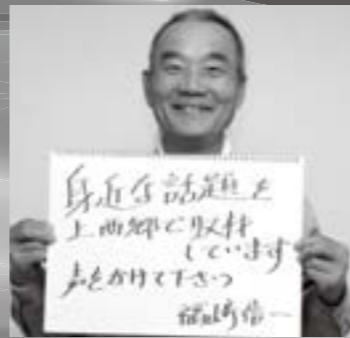 身近な話題を
上西郷で取材
しています
声をかけて下さい
信一